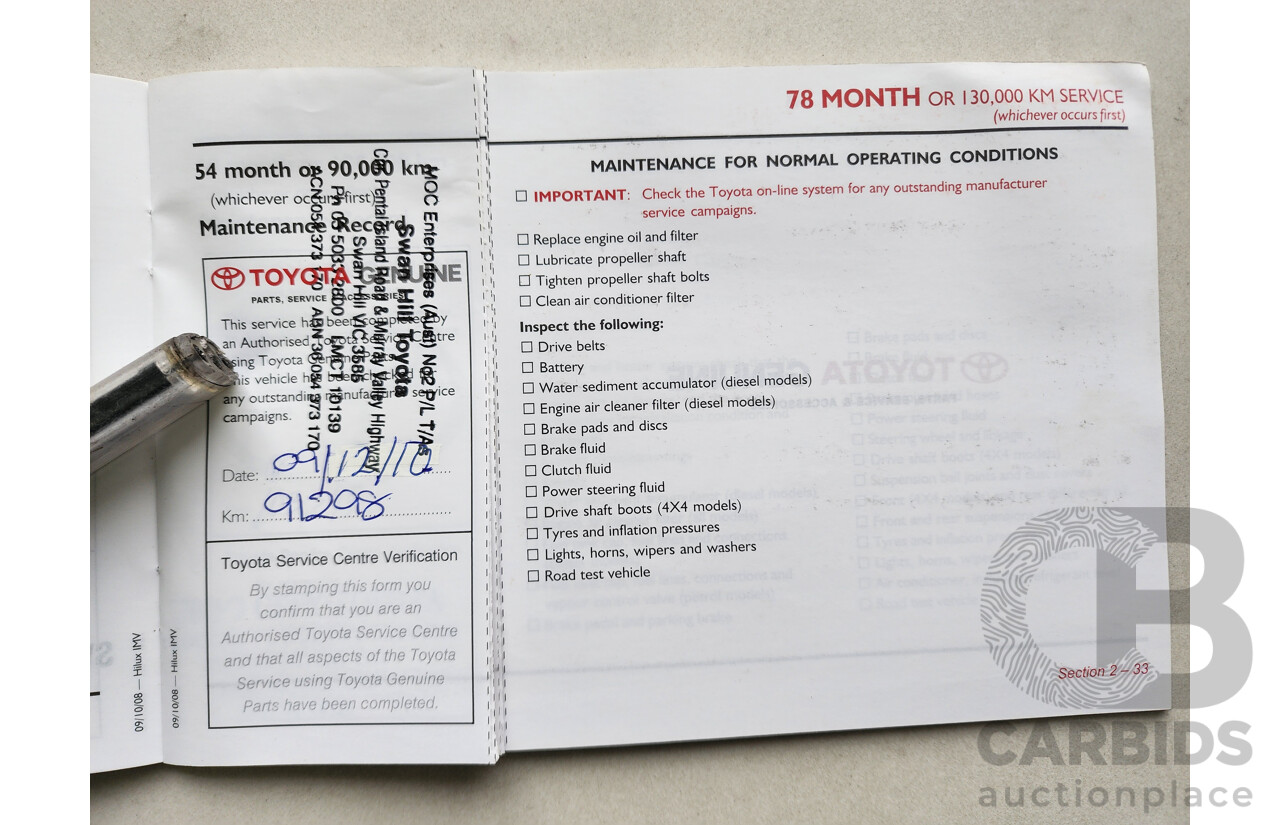 78 MONTH OR 130,000 KM SERVICE
(whichever occurs first)
54 month or 90,000 km
(whichever occurs first)
Maintenance Record
TOYOTA GENUINE
PARTS, SERVICE & ACCESSORIES
This service has been completed by
an Authorised Toyota Service Centre
using Toyota Genuine Parts.
This vehicle has been checked
any outstanding manufacturer service
campaigns.
Date: 09/12/10
Km: 91298
MOC Enterprises (Aust) No2 P/L T/As
Swan Hill Toyota
Cnr Pental Island Road & Murray Valley Highway
Swan Hill VIC 3585
LMCT 10139
Toyota Service Centre Verification
By stamping this form you
confirm that you are an
Authorised Toyota Service Centre
and that all aspects of the Toyota
Service using Toyota Genuine
Parts have been completed.
09/10/08 — Hilux IMV
09/10/08 — Hilux IMV
MAINTENANCE FOR NORMAL OPERATING CONDITIONS
☐ IMPORTANT: Check the Toyota on-line system for any outstanding manufacturer
service campaigns.
☐ Replace engine oil and filter
☐ Lubricate propeller shaft
☐ Tighten propeller shaft bolts
☐ Clean air conditioner filter
Inspect the following:
☐ Drive belts
☐ Battery
☐ Water sediment accumulator (diesel models)
☐ Engine air cleaner filter (diesel models)
☐ Brake pads and discs
☐ Brake fluid
☐ Clutch fluid
☐ Power steering fluid
☐ Drive shaft boots (4X4 models)
☐ Tyres and inflation pressures
☐ Lights, horns, wipers and washers
☐ Road test vehicle
Section 2 – 33
CARBIDS
auctionplace